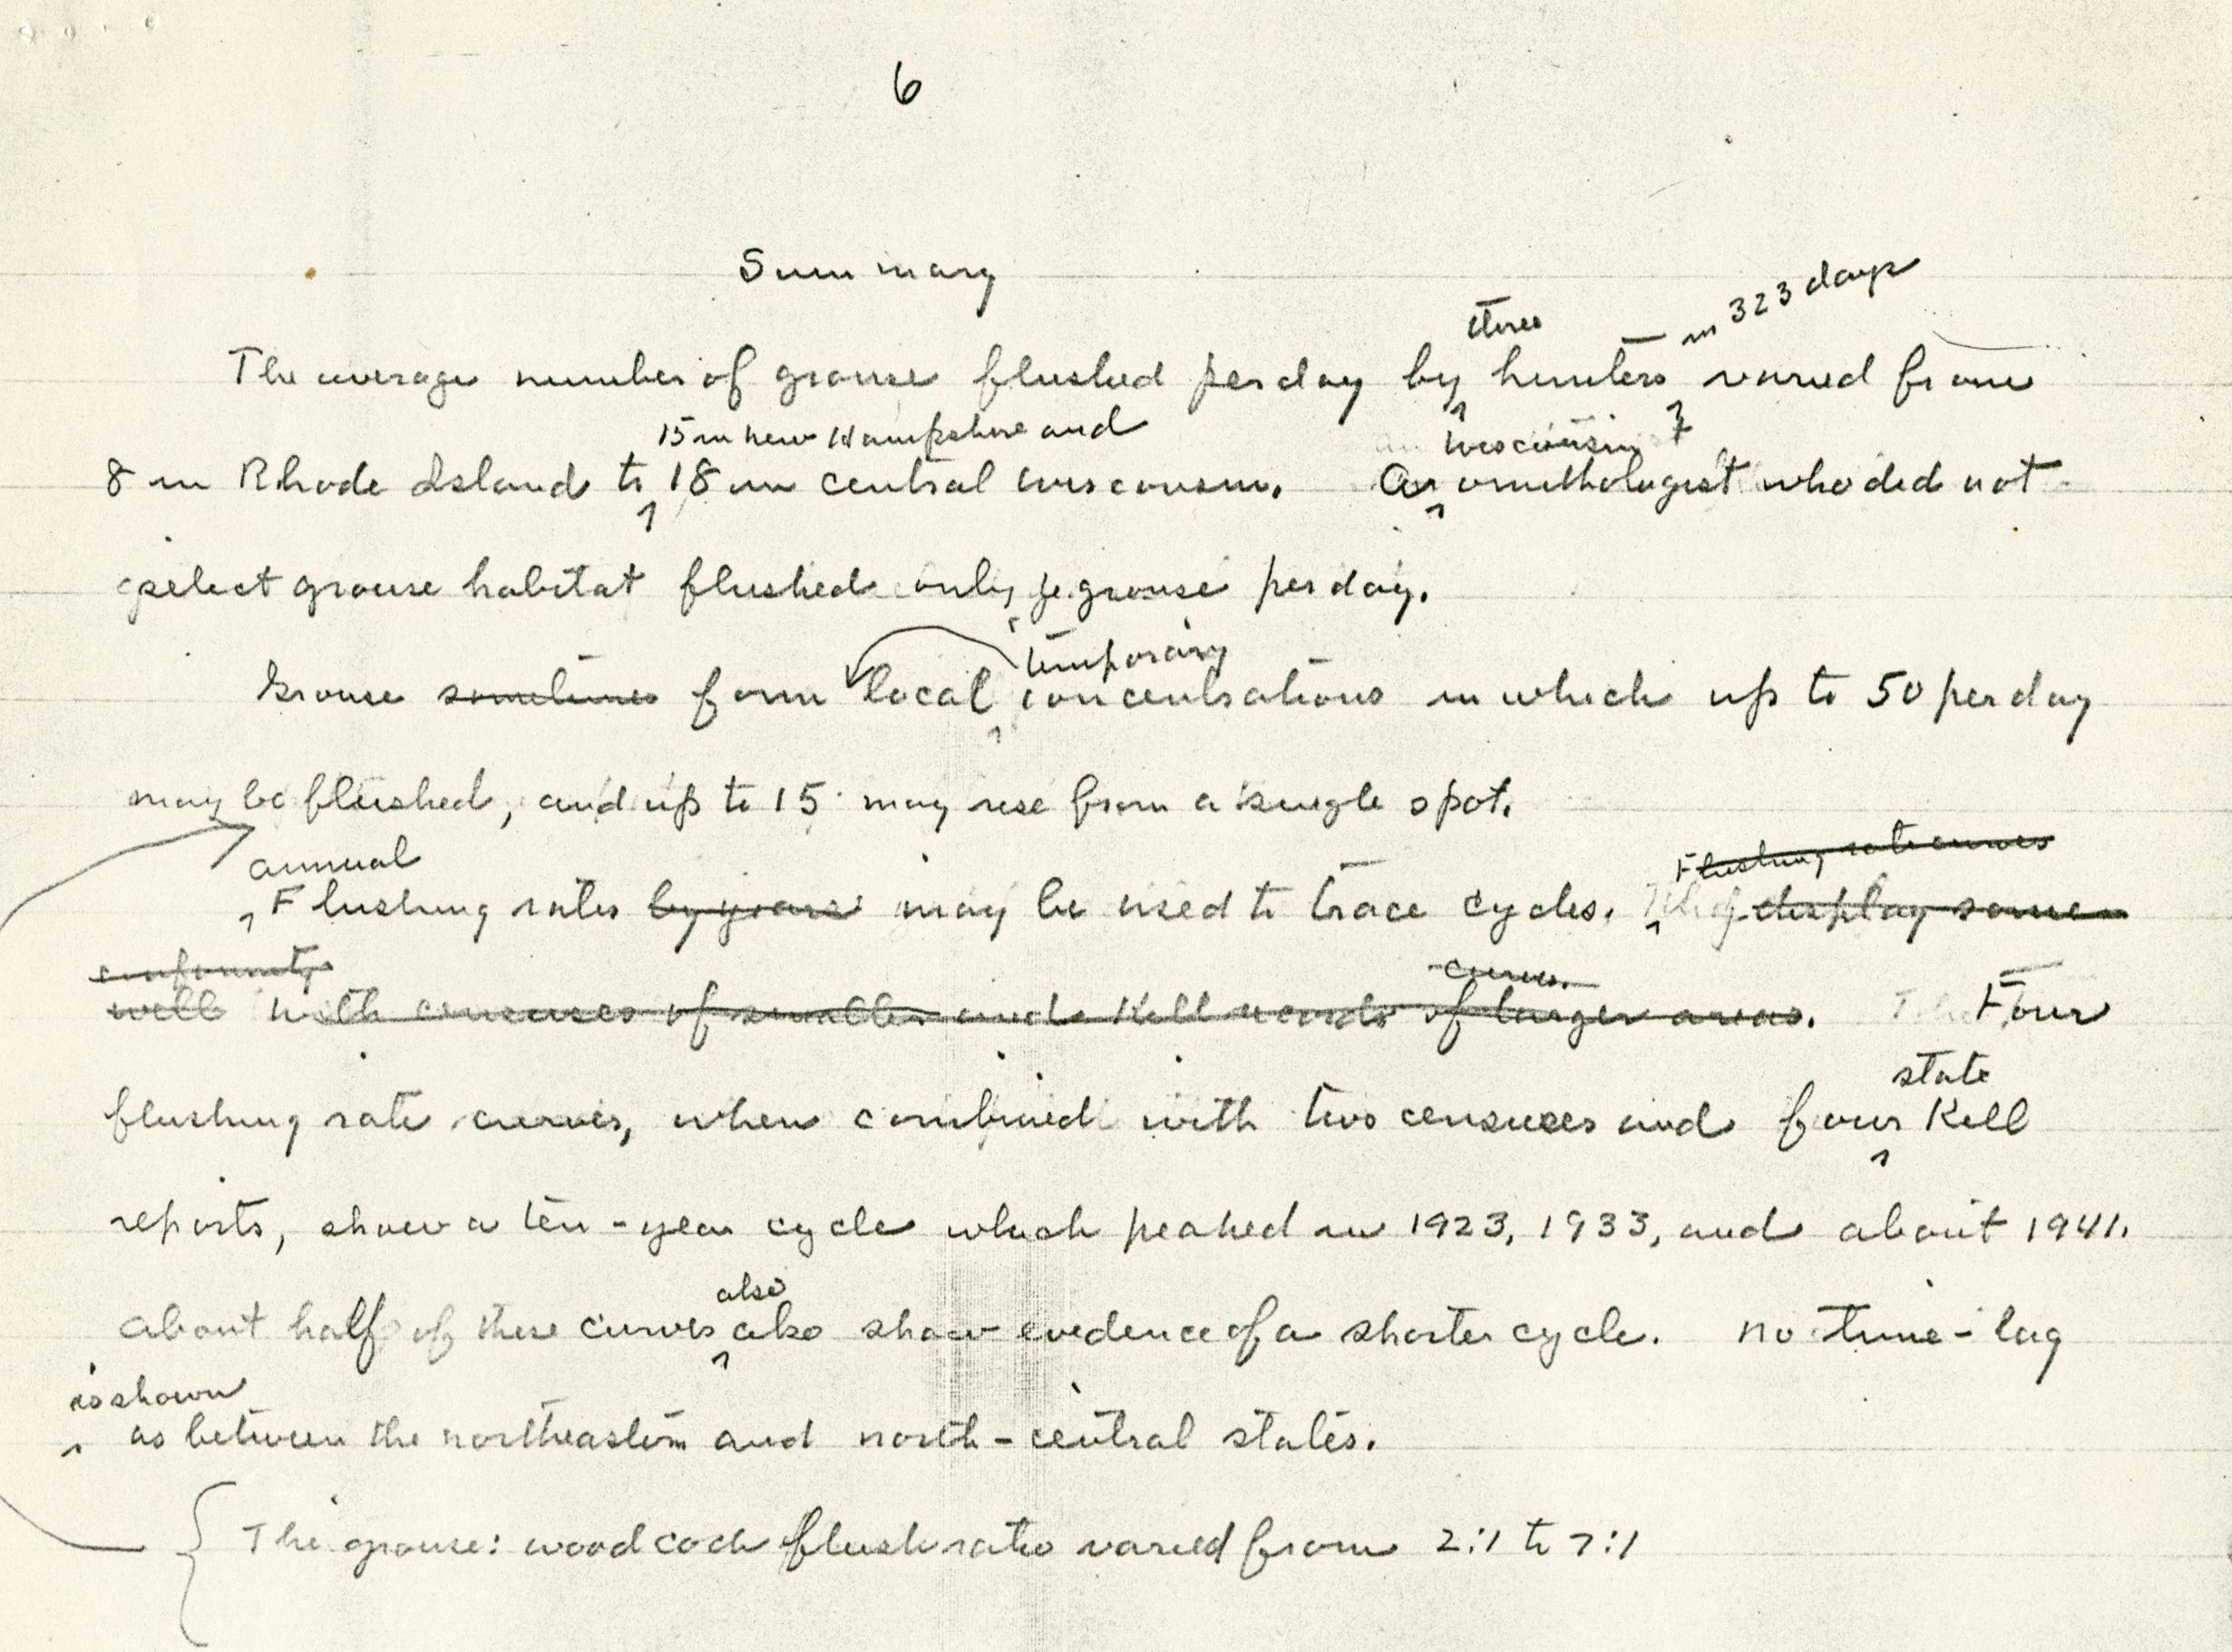 6
Summary
three in 323 days
The average number of grouse flushed per day by hunters varied from
15 in New Hampshire and Wisconsin
8 in Rhode Island to 18 in central Wisconsin. An ornithologist who did not
select grouse habitat flushed only grouse per day.
temporary
Grouse sometimes form local concentrations in which up to 50 per day
may be flushed, and up to 15 may rise from a single spot.
annual Flushing rate curves
Flushing rates by years may be used to trace cycles. They display some
conformity curves.
well with censuses of smaller and kill records of larger areas. Four
state
flushing rate curves, when combined with two censuses and four kill
reports, show a ten-year cycle which peaked in 1923, 1933, and about 1941.
also
About half of these curves also show evidence of a shorter cycle. No time-lag
is shown
as between the northeastern and north-central states.
The grouse: woodcock flush ratio varied from 2:1 to 7:1